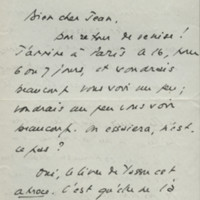 Bien cher Jean,
Son retour de semise !
J'arrive à Paris le 16, pour
6 ou 7 jours, et voudrais
beaucoup vous voir un peu ;
voudrais un peu vous voir
beaucoup. On essaiera, n'est-
ce pas ?
Oui, le livre de est
. C'est qu'elle